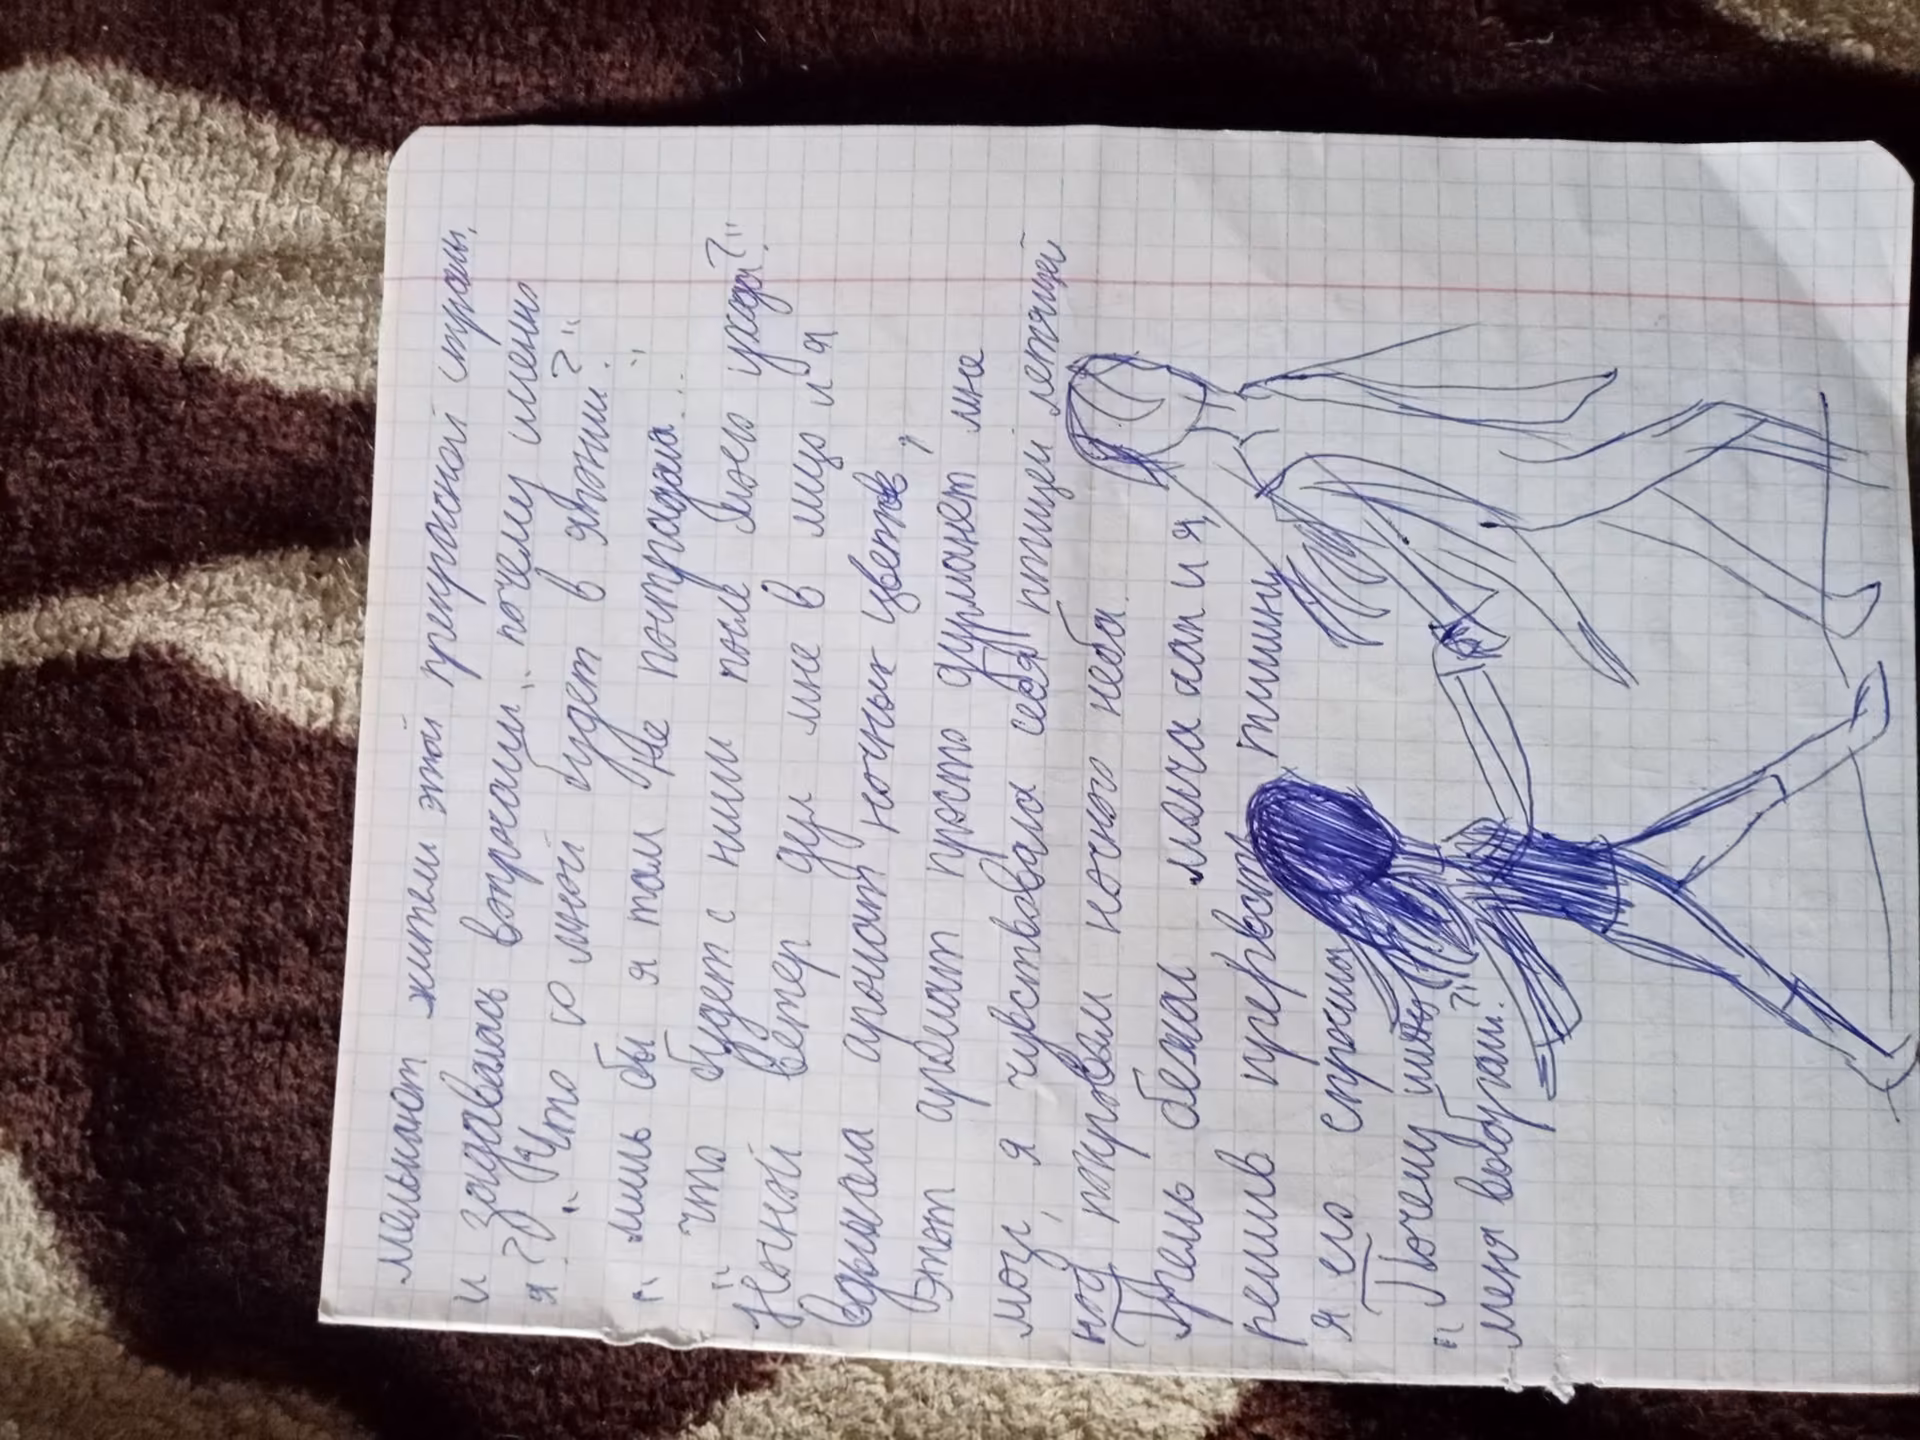 мелькают жители этой прекрасной страны,
и задавалась вопросами: „почему именно
я?“
„Что со мной будет в японии?“
„лишь бы я там не пострадала..“
„что будет с ним после моего ухода?“
Ночной ветер дул мне в лицо и я
вдыхала аромат ночных цветов,
Этот аромат просто дурманет мне
мозг, я чувствовала себя птицей летящей
над покровом ночного неба.
Трель бежал молча как и я,
решив прервать тишину
я его спросила
„Почему
меня выбрали?“